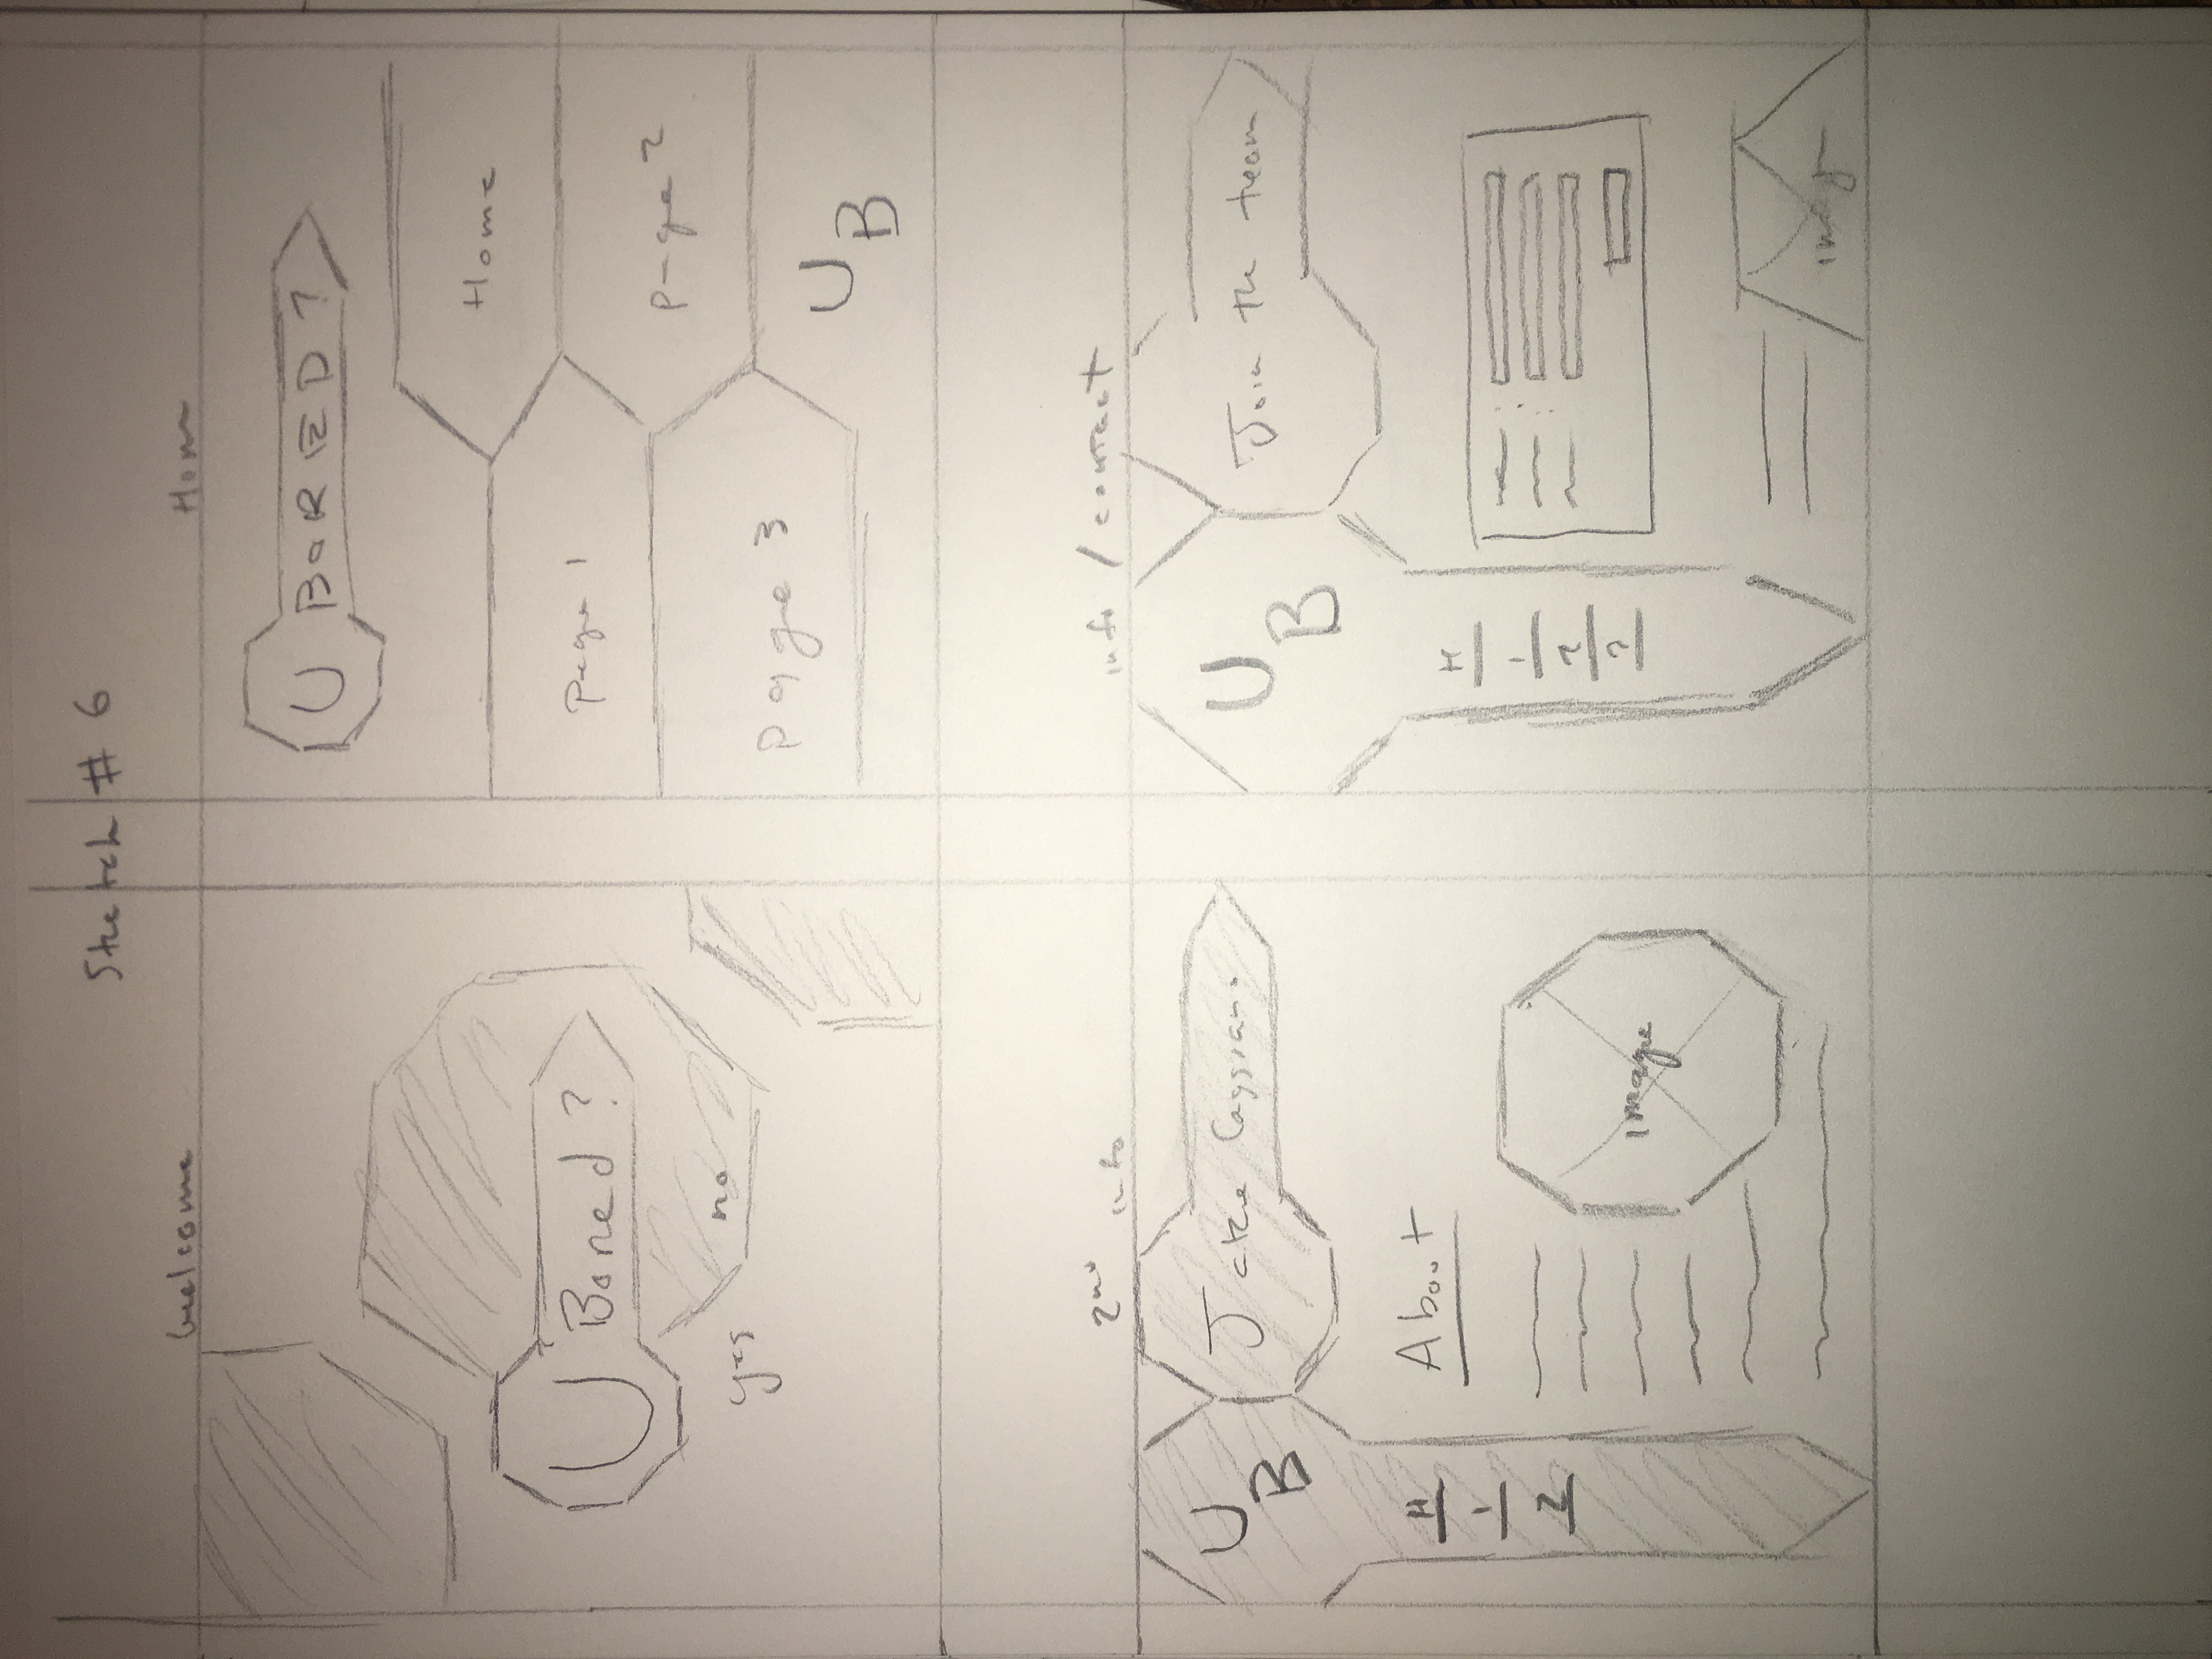 Sketch # 6
Welcome
Home
U Bored ?
yes
no
U BORED ?
Home
Page 1
Page 2
Page 3
U
B
2nd info
U
B
Jake Caggiano
H
1
2
About
image
info / contact
U
B
Join the team
H
1
2
3
image